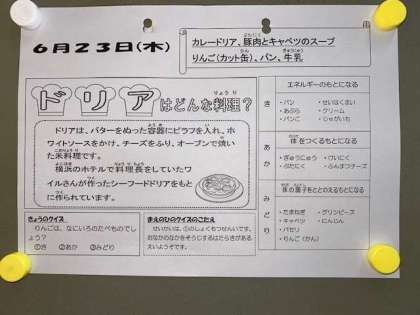 6月23日(木)
カレードリア、豚肉とキャベツのスープ
りんご(カット缶)、パン、牛乳
ドリアはどんな料理?
ドリアは、バターをぬった容器にピラフを入れ、ホ
ワイトソースをかけ、チーズをふり、オーブンで焼い
た米料理です。
横浜のホテルで料理長をしていたワ
イルさんが作ったシーフードドリアをもと
に作られています。
きょうのクイズ
りんごは、なにいろのたべものでし
ょう?
①き ②あか ③みどり
まえのひのクイズのこたえ
せいかいは、①のしょくもつせんいです。
おなかのなかをそうじするはたらきがある
えいようそです。
き
エネルギーのもとになる
・パン ・せいはくまい
・あぶら ・クリーム
・パンこ ・じゃがいも
あか
体をつくるもとになる
・ぎゅうにゅう ・けいにく
・ぶたにく ・ふんまつチーズ
みどり
体の調子をととのえるもとになる
・たまねぎ ・グリンピース
・キャベツ ・にんじん
・パセリ
・りんご(かん)